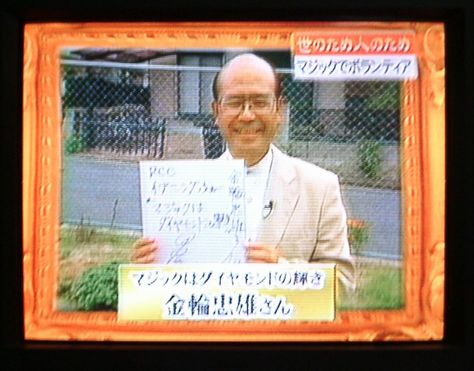 世のため人のため
マジックでボランティア
RCC
イブニングふぉー
"マジックは
ダイヤモンドの輝き
金輪忠雄
マジックはダイヤモンドの輝き
金輪忠雄さん